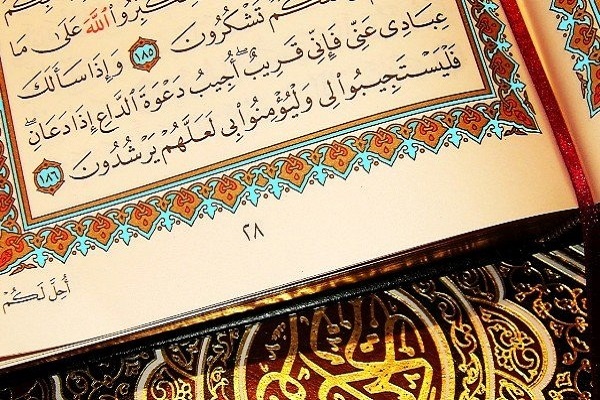 تُكَبِّرُوا۟ ٱللَّهَ عَلَىٰ مَا
هَدَىٰكُمْ وَلَعَلَّكُمْ تَشْكُرُونَ ١٨٥ وَإِذَا سَأَلَكَ
عِبَادِى عَنِّى فَإِنِّى قَرِيبٌ أُجِيبُ دَعْوَةَ ٱلدَّاعِ إِذَا دَعَانِ
فَلْيَسْتَجِيبُوا۟ لِى وَلْيُؤْمِنُوا۟ بِى لَعَلَّهُمْ يَرْشُدُونَ ١٨٦
٢٨
أُحِلَّ لَكُمْ